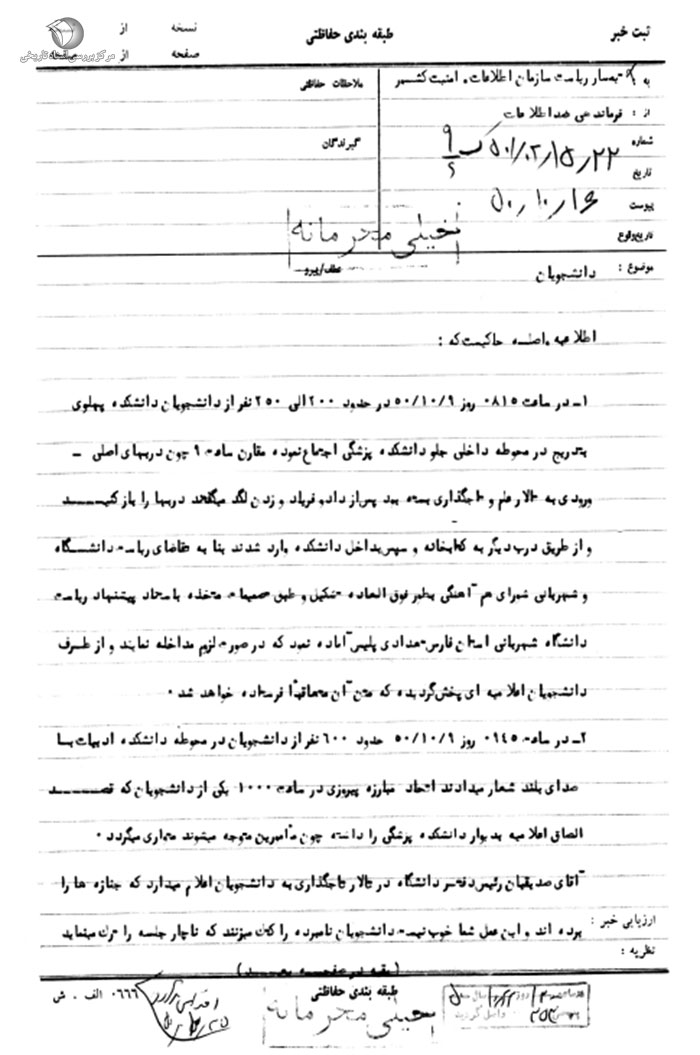 ثبت خبر
طبقه بندی حفاظتی
نسخه از
صفحه از صفحه
مرکز بررسی اسناد تاریخی
به : تیمسار ریاست سازمان اطلاعات و امنیت کشور
ملاحظات حفاظتی
از : فرماندهی ضد اطلاعات
گیرندگان
شماره
تاریخ
پیوست ۵۰/۱۰/۱۶
تاریخ وقوع
خیلی محرمانه
عطف/پیرو
موضوع : دانشجویان
اطلاعیه واصله حاکیست که :
۱- در ساعت ۰۸۱۵ روز ۵۰/۱۰/۹ در حدود ۲۰۰ الی ۲۵۰ نفر از دانشجویان دانشکده پهلوی
بتدریج در محوطه داخلی جلو دانشکده پزشکی اجتماع نموده مقارن ساعت ۹ چون دربهای اصلی -
ورودی به تالار علم و تاجگذاری بسته بود پس از داد و فریاد و زدن لگد میگفتند دربها را باز کنید
و از طریق درب دیگر به کتابخانه و سپس بداخل دانشکده وارد شدند بنا به تقاضای ریاست دانشگاه
و شهربانی شورای هم آهنگی بطور فوق العاده تشکیل و طبق تصمیمات متخذه با ستاد پیشنهاد ریاست
دانشگاه شهربانی استان فارس تعدادی پلیس آماده نمود که در صورت لزوم مداخله نمایند و از طرف
دانشجویان اعلامیه ای پخش گردیده که متن آن متعاقباً فرستاده خواهد شد .
۲- در ساعت ۰۹۴۵ روز ۵۰/۱۰/۹ حدود ۶۰۰ نفر از دانشجویان در محوطه دانشکده ادبیات با
صدای بلند شعار میدادند اتحاد مبارزه پیروزی در ساعت ۱۰۰۰ یکی از دانشجویان که قصد
الصاق اعلامیه بدیوار دانشکده پزشکی را داشته چون مأمورین متوجه میشوند متواری میگردد .
آقای صدیقیان رئیس دفتر دانشگاه در تالار تاجگذاری به دانشجویان اعلام میدارد که جنازه ها را
برده اند و این عمل شما خوب نیست دانشجویان نامبرده را کتک میزنند که ناچار جلسه را ترک مینماید
ارزیابی خبر :
نظریه :
(بقیه در صفحه بعد)
طبقه بندی حفاظتی
۰۶۶۶ الف . ش
خیلی محرمانه